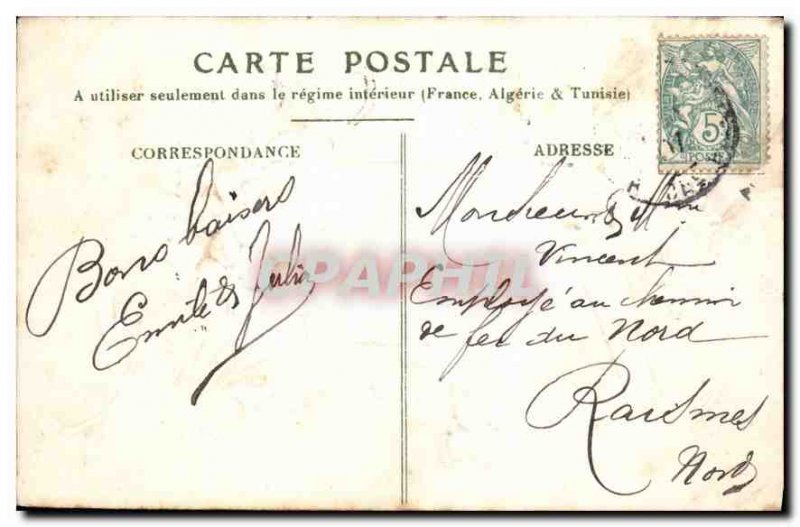 CARTE POSTALE
A utiliser seulement dans le régime intérieur (France, Algérie & Tunisie)
CORRESPONDANCE
ADRESSE
Bons baisers
Emile & Julia
Monsieur & Mme
Vincent
Employé au chemin
de fer du Nord
Raismes
Nord
5
POSTE
CPAPHIL